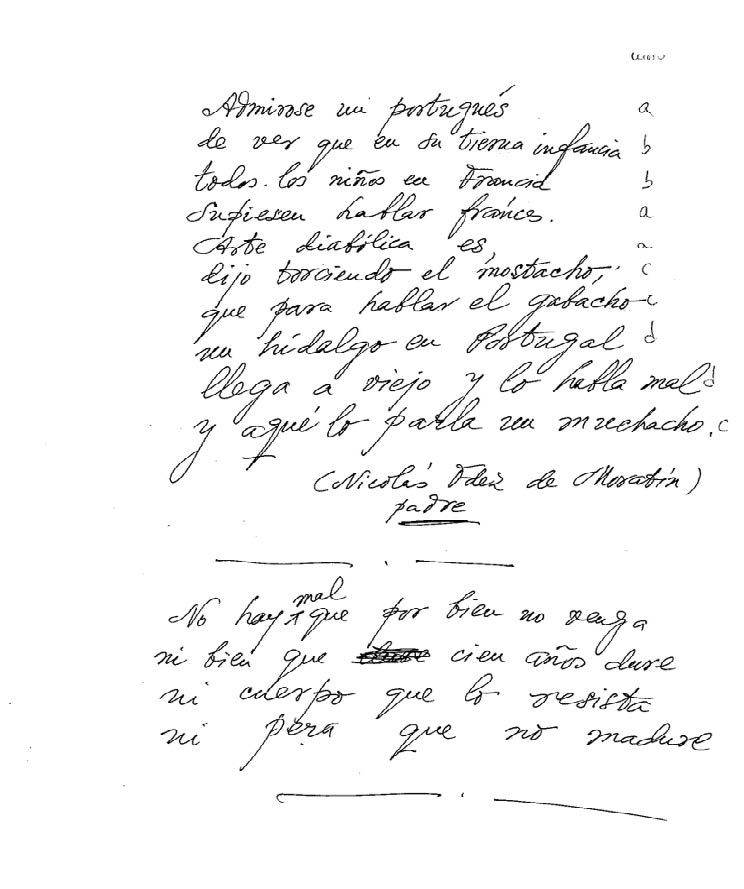 Admirose un portugués a
de ver que en su tierna infancia b
todos los niños en Francia b
Supiesen hablar francés. a
Arte diabólica es, a
dijo torciendo el mostacho, c
que para hablar el gabacho c
un hidalgo en Portugal d
llega a viejo y lo habla mal d
y aquí lo parla un muchacho. c
(Nicolás Fdez de Moratín)
padre
No hay mal que por bien no venga
ni bien que cien años dure
ni cuerpo que lo resista
ni pera que no madure